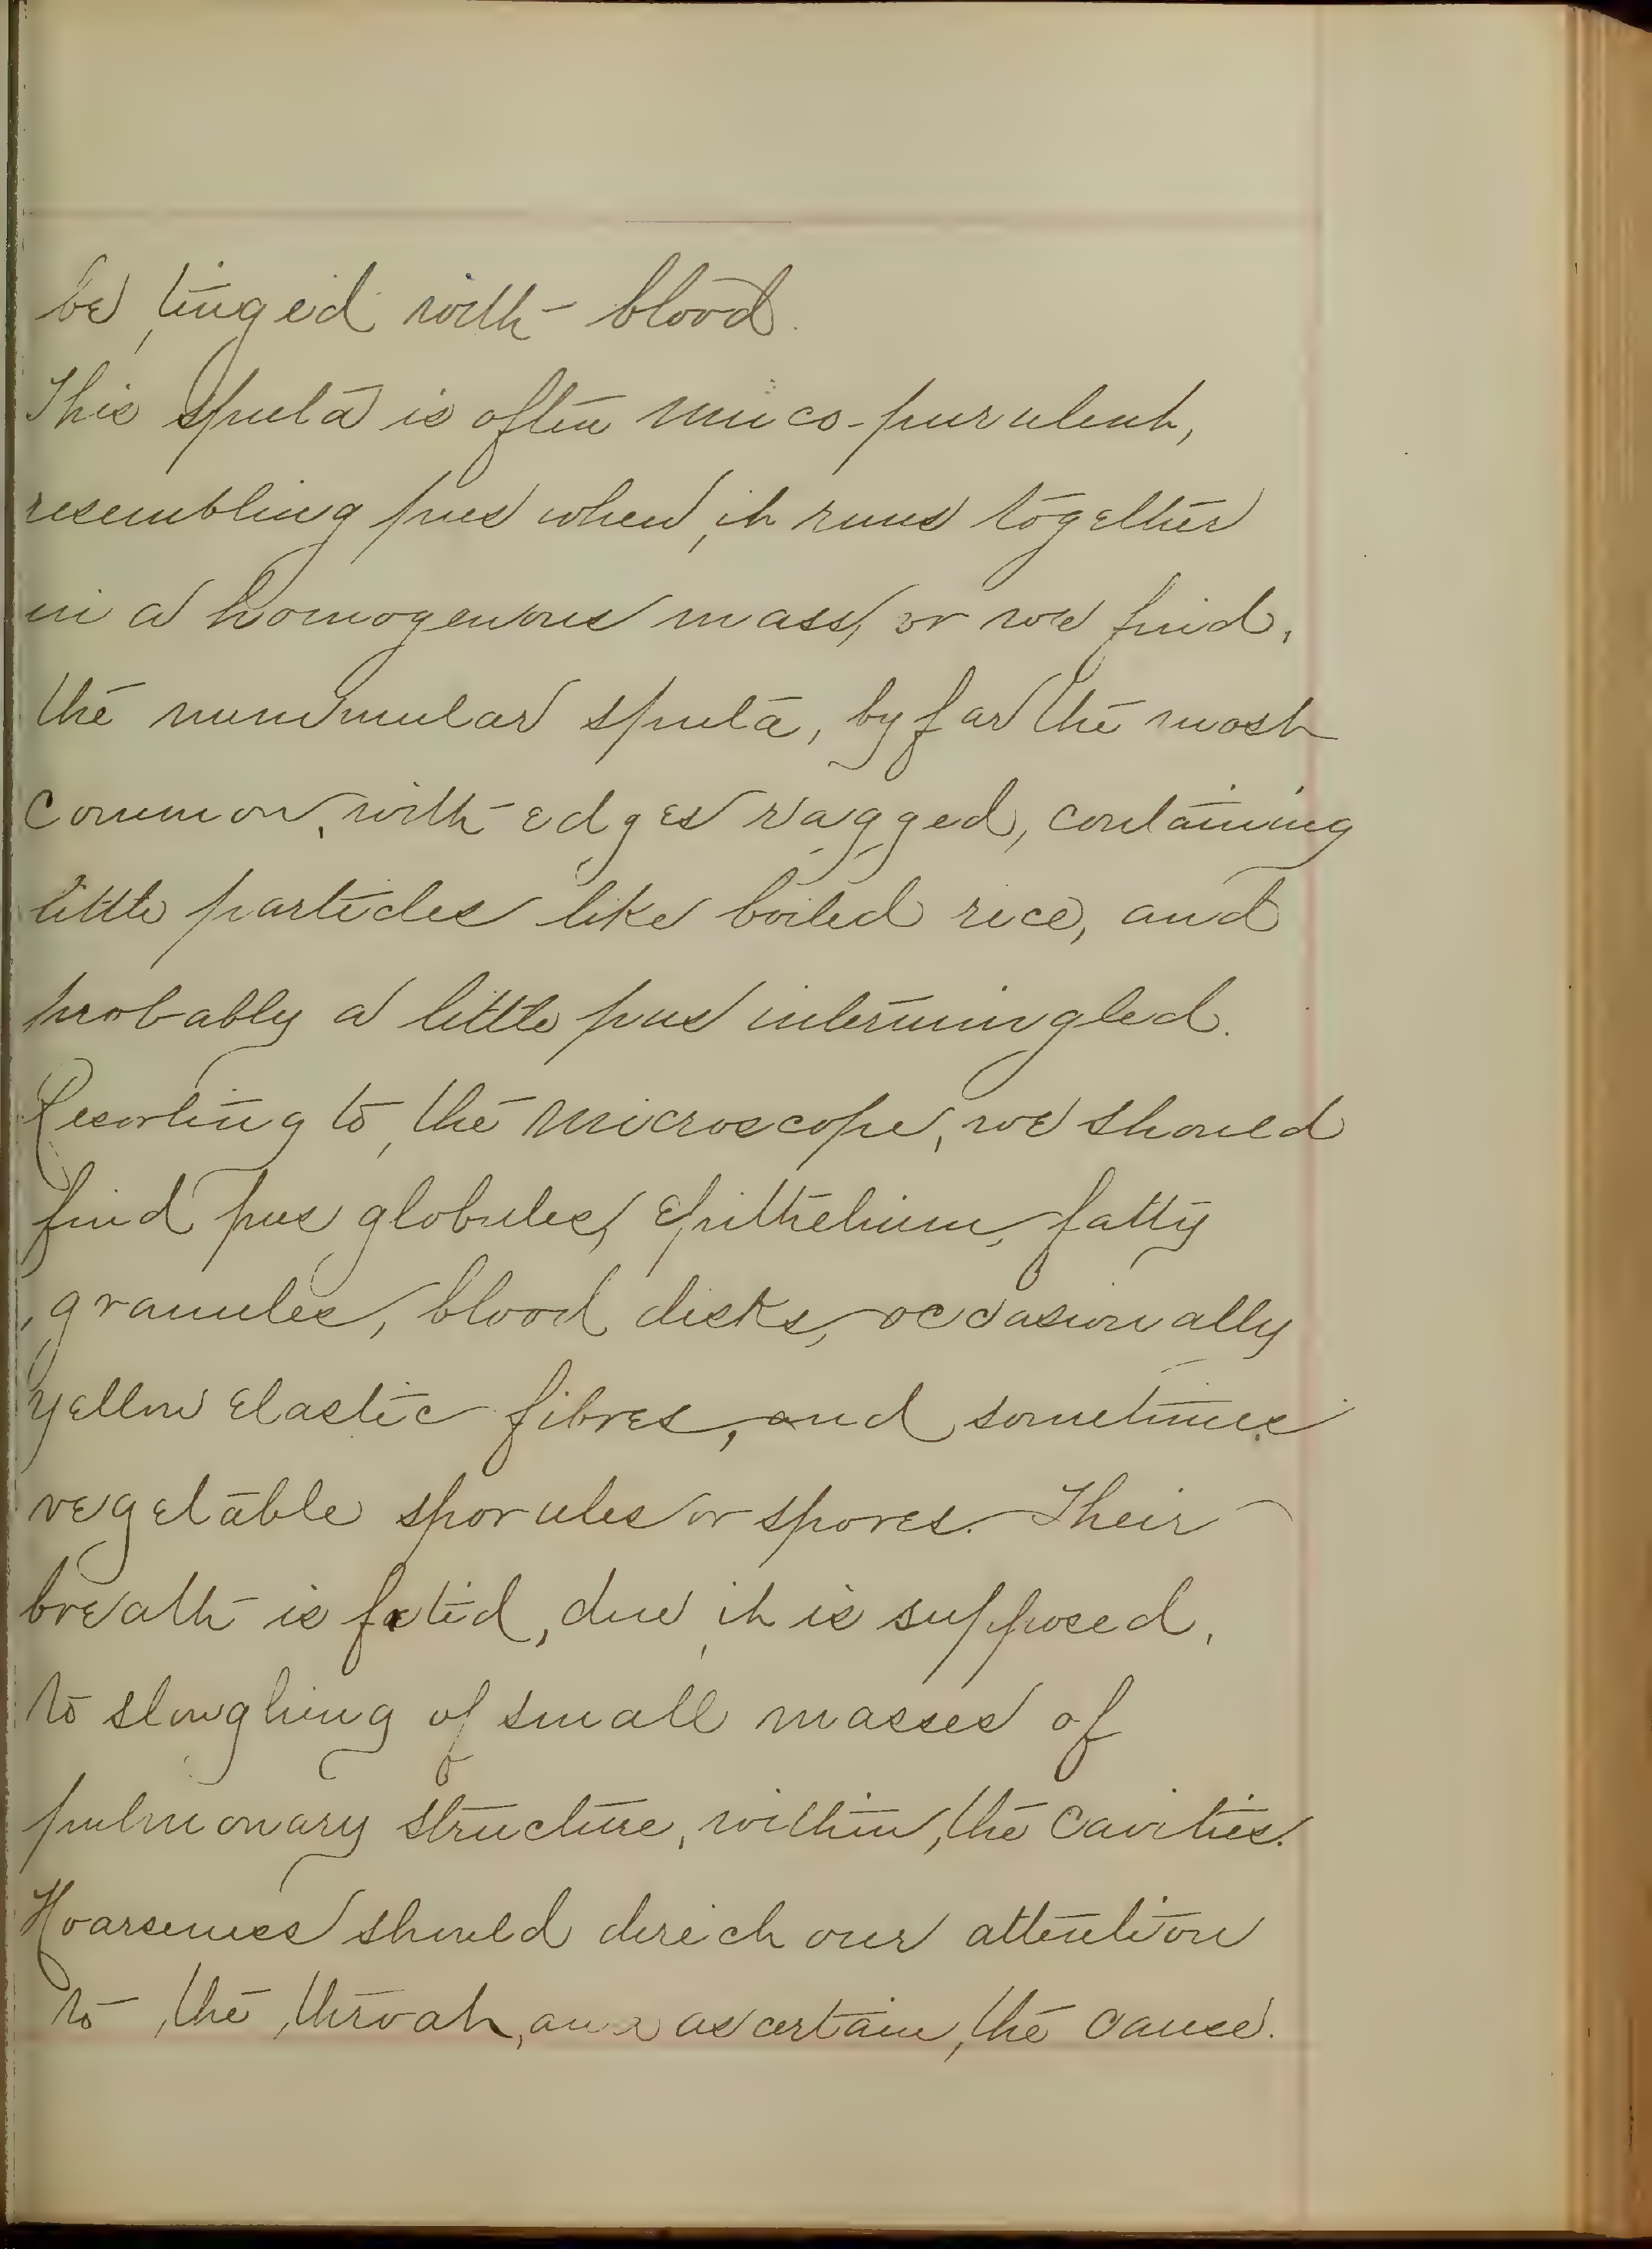 be tinged with blood.
This sputa is often muco-purulent,
resembling pus when it runs together
in a homogenous mass, or we find,
the nummular sputa, by far the most
common, with edges ragged, containing
little particles like boiled rice, and
probably a little pus intermingled.
Resorting to the microscope, we should
find pus globules, epithelium, fatty
granules, blood disks, occasionally
yellow elastic fibres, and sometimes
vegetable sporules or spores. Their
breath is fœtid, due it is supposed,
to sloughing of small masses of
pulmonary structure, within the cavities.
Hoarseness should direct our attention
to the throat, and ascertain the cause.